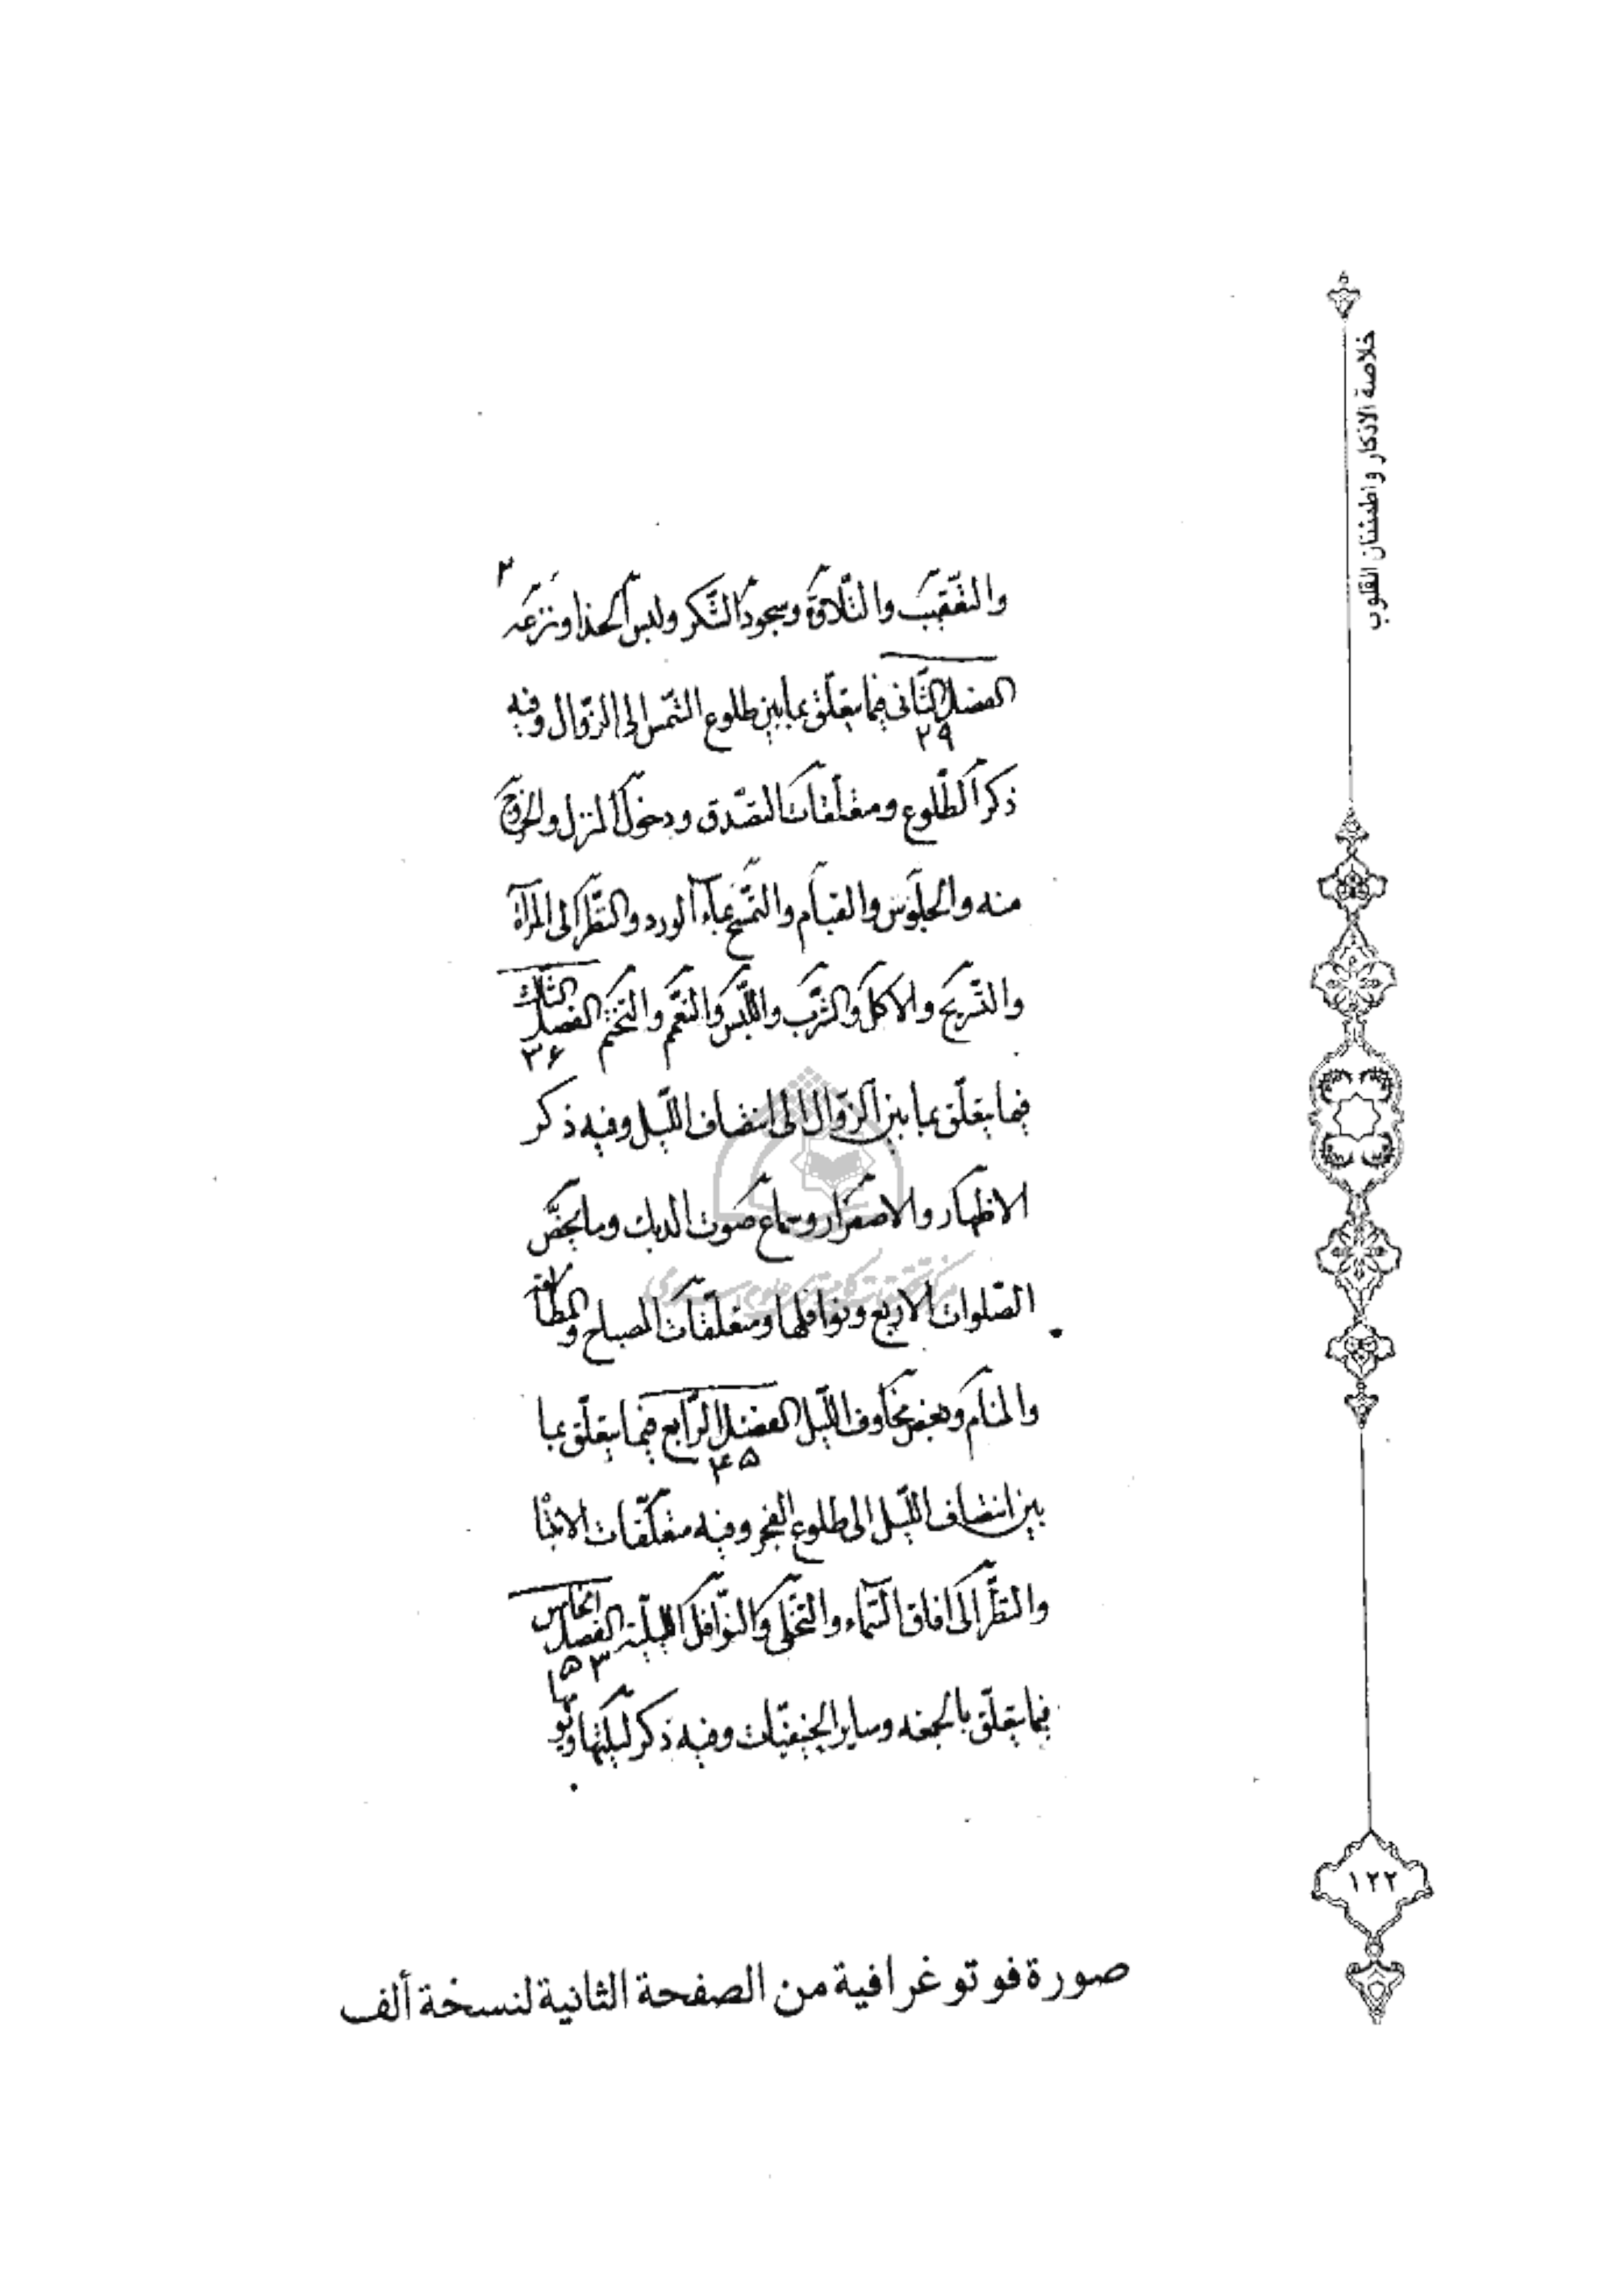 خلاصة الاذكار واطمئنان القلوب
٢
والتعقيب والتلاوة وسجود الشكر ولبس الحذا ونزعه
الفصل الثانى فيما يتعلق بما بين طلوع الشمس الى الزوال وفيه
٢٩
ذكر الطلوع ومتعلقات التصدق ودخول المنزل والخروج
منه والجلوس والقيام والتمسح بماء الورد والنظر الى المرآة
والتسريح والاكل والشرب واللبس والتعمم والتختم الفصل الثالث
٣۶
فيما يتعلق بما بين الزوال الى انتصاف الليل وفيه ذكر
الاظهار والاصفرار وسماع صوت الديك وما يخص
الصلوات الاربع ونوافلها ومتعلقات المصباح والمطالعة
والمنام وبعض مخاوف الليل الفصل الرابع فيما يتعلق بما
۴۵
بين انتصاف الليل الى طلوع الفجر وفيه متعلقات الانتباه
والنظر الى افاق السماء والتخلى والنوافل الليلية الفصل الخامس
۵٣
فيما يتعلق بالجمعه وساير الحنيفيات وفيه ذكر ليلتها ويومها
١٢٢
صورة فوتوغرافية من الصفحة الثانية لنسخة ألف